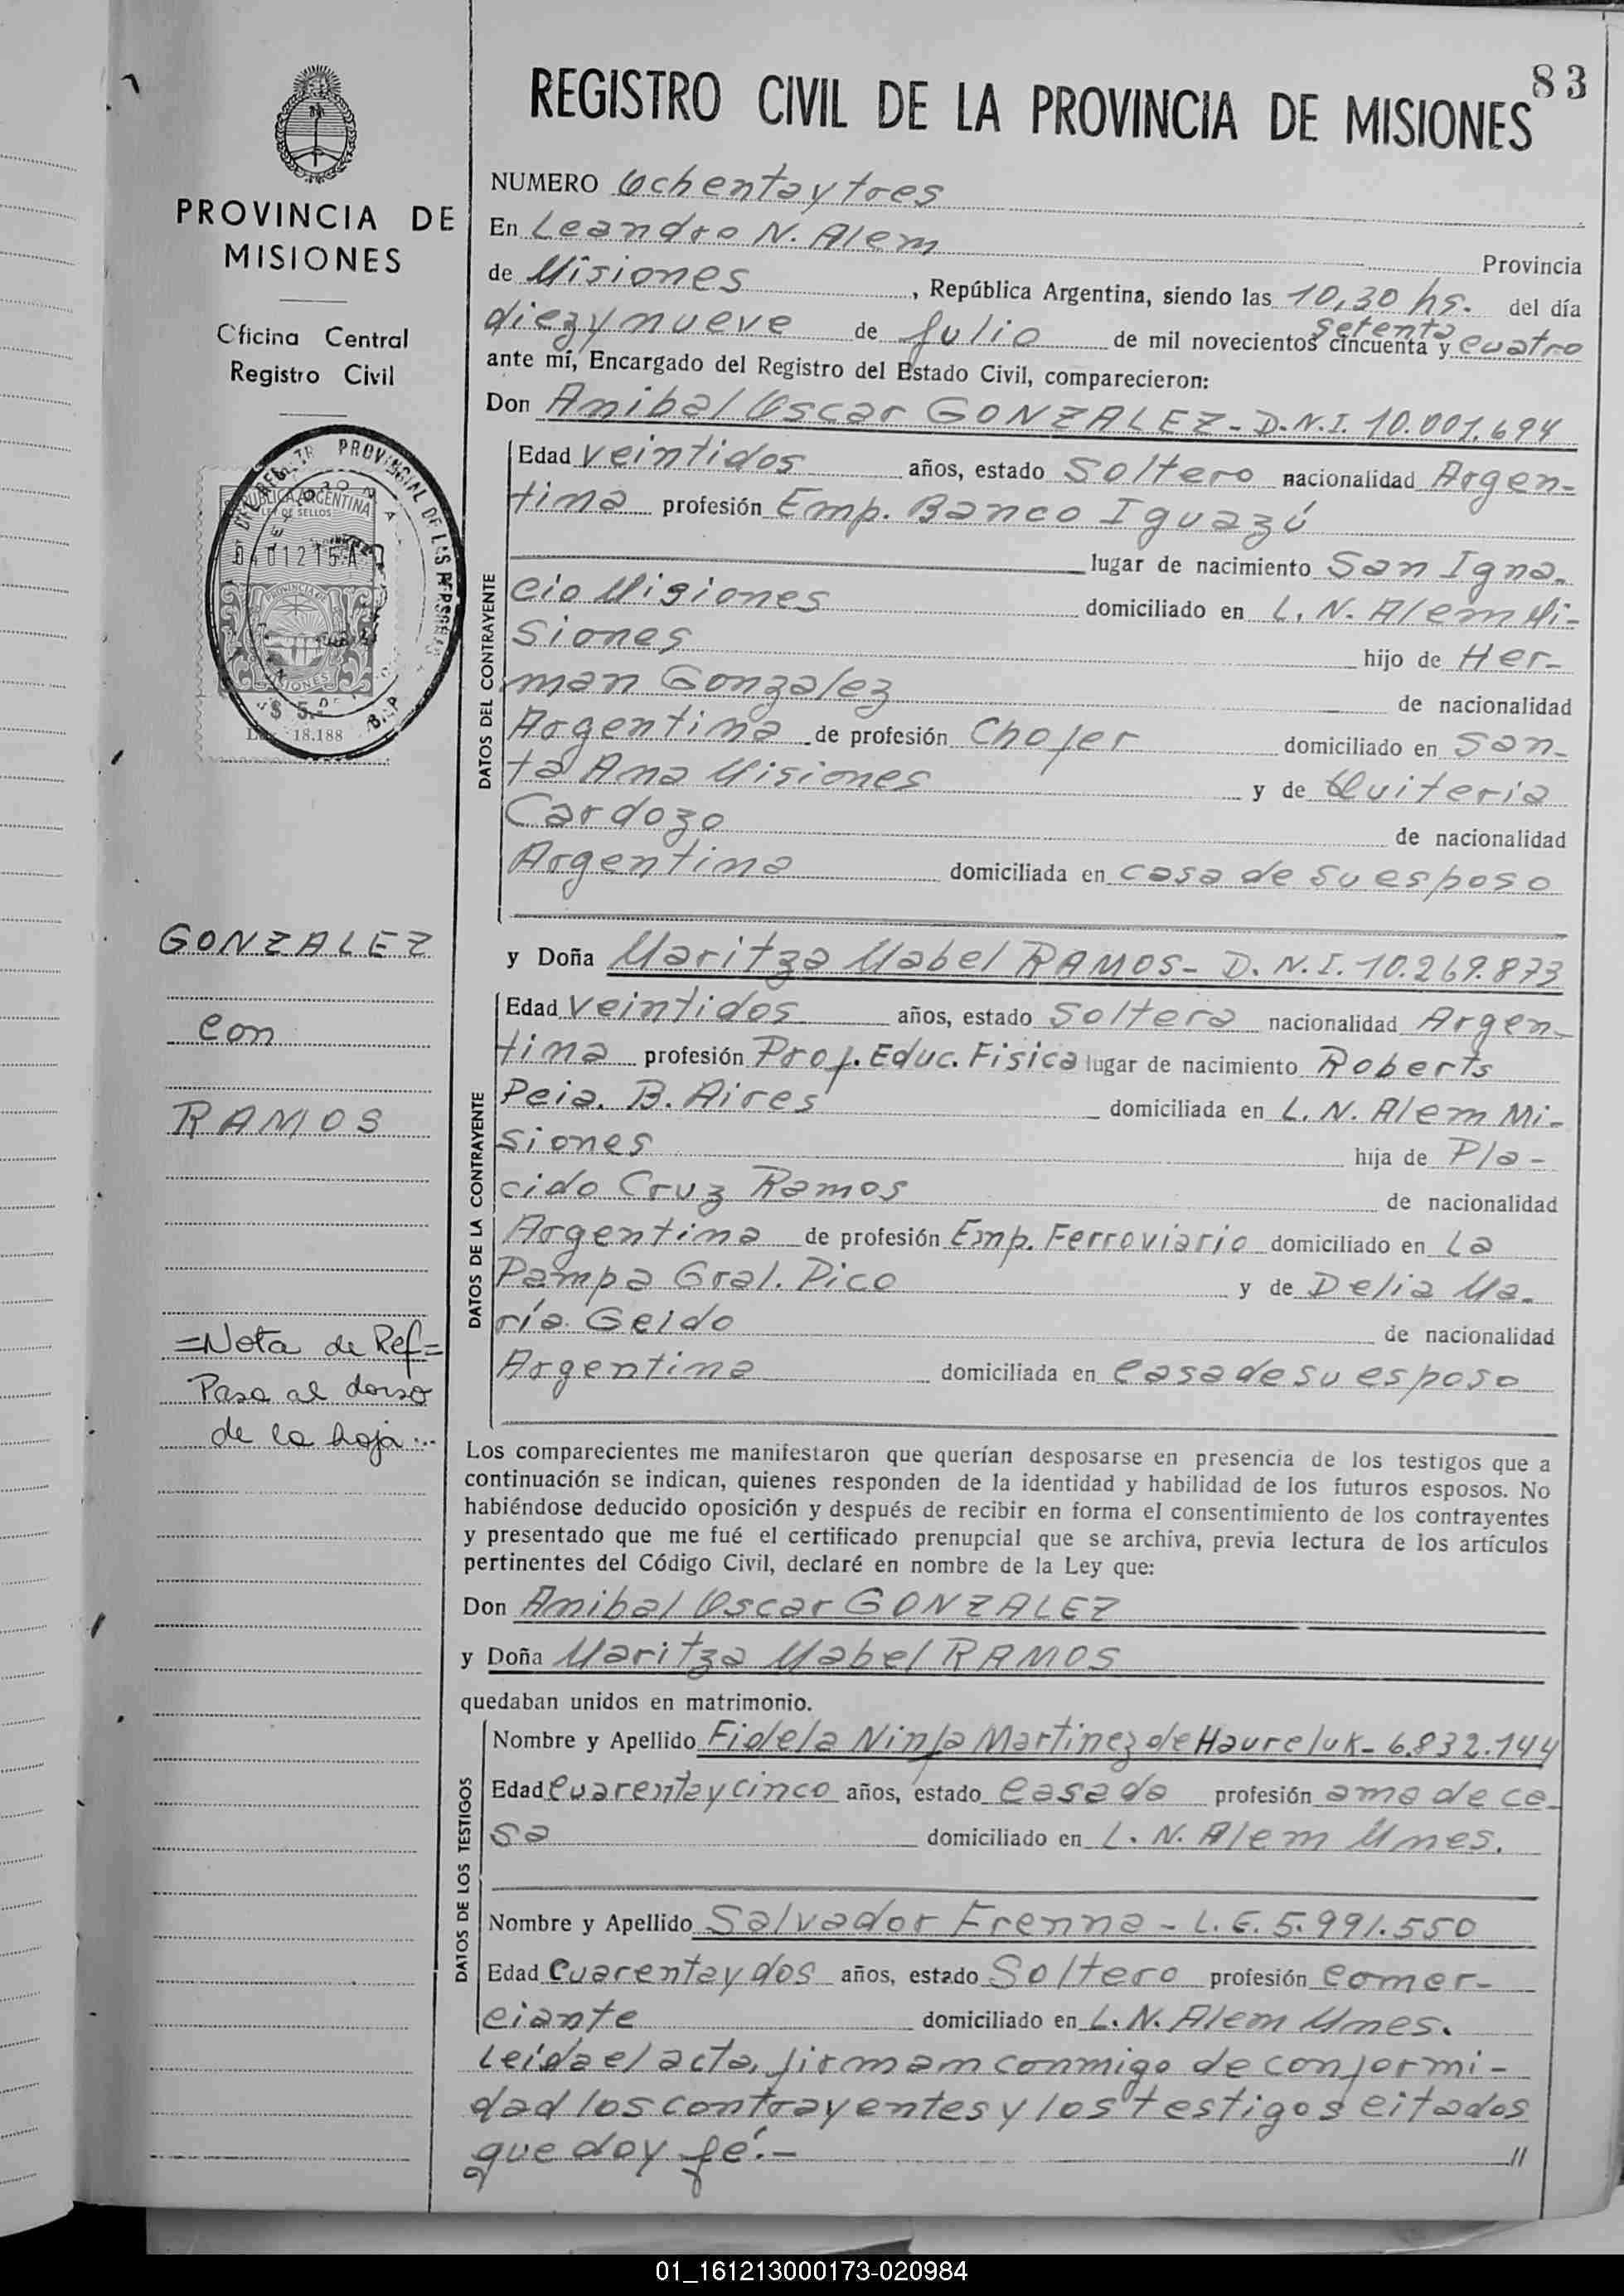 83
REGISTRO CIVIL DE LA PROVINCIA DE MISIONES
PROVINCIA DE
MISIONES
Oficina Central
Registro Civil
REPUBLICA ARGENTINA
LEY DE SELLOS
0401215A
PROVINCIA DE
MISIONES
$ 5.-
Ley 18.188
GONZALEZ
con
RAMOS
=Nota de Ref=
Pasa al dorso
de la hoja...
NUMERO Ochenta y tres
En Leandro N. Alem Provincia
de Misiones, República Argentina, siendo las 10,30 hs. del día
diez y nueve de Julio de mil novecientos cincuenta setenta y cuatro
ante mí, Encargado del Registro del Estado Civil, comparecieron:
Don Anibal Oscar GONZALEZ - D.N.I. 10.001.694
DATOS DEL CONTRAYENTE
Edad veintidos años, estado Soltero nacionalidad Argen-
tina profesión Emp. Banco Iguazú
lugar de nacimiento San Igna-
cio Misiones domiciliado en L. N. Alem Mi-
siones hijo de Her-
man Gonzalez de nacionalidad
Argentina de profesión Chofer domiciliado en San-
ta Ana Misiones y de Quiteria
Cardozo de nacionalidad
Argentina domiciliada en casa de su esposo
y Doña Maritza Mabel RAMOS - D.N.I. 10.269.873
DATOS DE LA CONTRAYENTE
Edad veintidos años, estado Soltera nacionalidad Argen-
tina profesión Prof. Educ. Fisica lugar de nacimiento Roberts
Pcia. B. Aires domiciliada en L. N. Alem Mi-
siones hija de Pla-
cido Cruz Ramos de nacionalidad
Argentina de profesión Emp. Ferroviario domiciliado en La
Pampa Gral. Pico y de Delia Ma-
ría Geido de nacionalidad
Argentina domiciliada en casa de su esposo
Los comparecientes me manifestaron que querían desposarse en presencia de los testigos que a
continuación se indican, quienes responden de la identidad y habilidad de los futuros esposos. No
habiéndose deducido oposición y después de recibir en forma el consentimiento de los contrayentes
y presentado que me fué el certificado prenupcial que se archiva, previa lectura de los artículos
pertinentes del Código Civil, declaré en nombre de la Ley que:
Don Anibal Oscar GONZALEZ
y Doña Maritza Mabel RAMOS
quedaban unidos en matrimonio.
DATOS DE LOS TESTIGOS
Nombre y Apellido Fidela Ninfa Martinez de Haureluk - 6.832.144
Edad cuarenta y cinco años, estado casada profesión ama de ca-
sa domiciliado en L. N. Alem Mnes.
Nombre y Apellido Salvador Frenna - L.E. 5.991.550
Edad cuarenta y dos años, estado Soltero profesión comer-
ciante domiciliado en L. N. Alem Mnes.
Leída el acta, firman conmigo de conformi-
dad los contrayentes y los testigos citados
que doy fé.- //
01_161213000173-020984